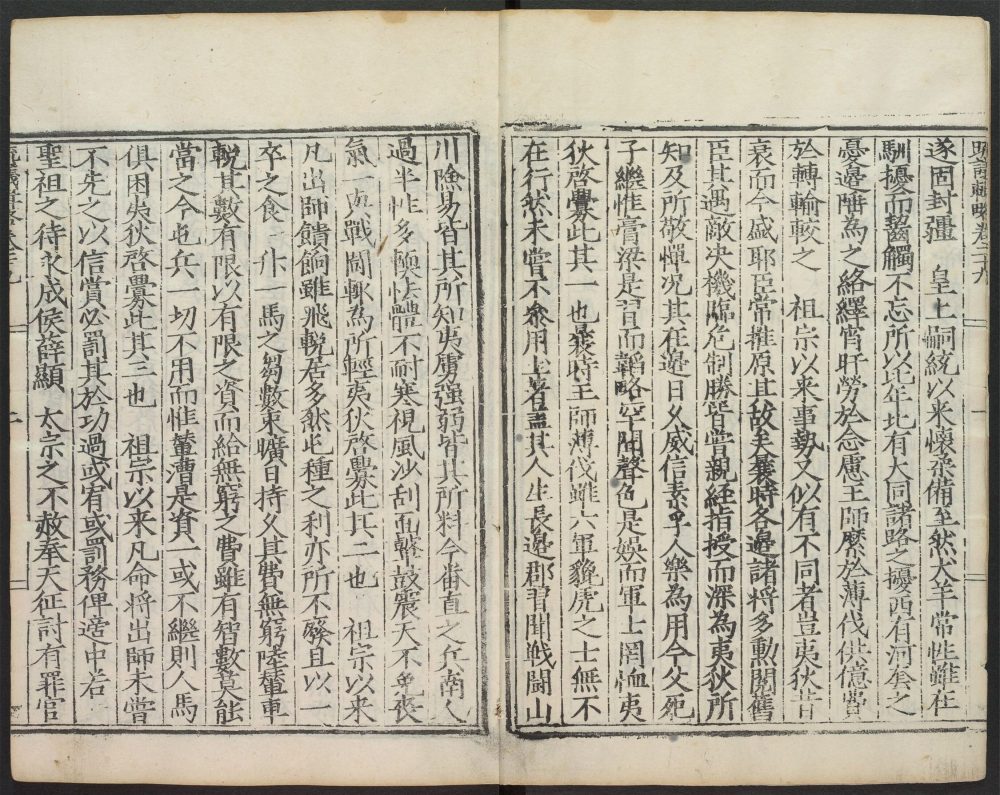 遂固封疆　皇上嗣統以来懷柔備至然犬羊常性雖在
馴擾而齧觸不忘所以比年北有大同諸路之擾西有河套之
憂邊陲為之絡繹宵旰勞於念慮王師縻於薄伐供億費
於轉輸較之　祖宗以来事勢又似有不同者豈夷狄昔
衰而今盛耶臣常推原其故矣曩時各邊諸将多勳閥舊
臣其遇敵决機臨危制勝皆嘗親経指授而深為夷狄所
知及所敬憚况其在邊日久威信素孚人樂為用今父死
子繼惟膏粱是習而韜略罕聞聲色是娛而軍士罔恤夷
狄啓釁此其一也曩時王師薄伐雖六軍貔虎之士無不
在行然未嘗不叅用土著盖其人生長邊郡習聞戰鬪山
川險易皆其所知夷虜强弱皆其所料今番直之兵南人
過半性多愞怯體不耐寒視風沙刮面鼙鼓震天不免喪
氣一真戰鬪輒為所輕夷狄啓釁此其二也　祖宗以来
凡出師饋餉雖飛輓居多然屯種之利亦所不廢且以一
卒之食一升一馬之芻數束曠日持久其費無窮陸輦車
輓其數有限以有限之資而給無窮之費雖有智數莫能
當之今屯兵一切不用而惟輦漕是資一或不繼則人馬
俱困夷狄啓釁此其三也　祖宗以来凡命将出師未嘗
不先之以信賞必罰其於功過或宥或罰務俾適中若
聖祖之待永成侯薛顯　太宗之不赦奉天征討有罪官